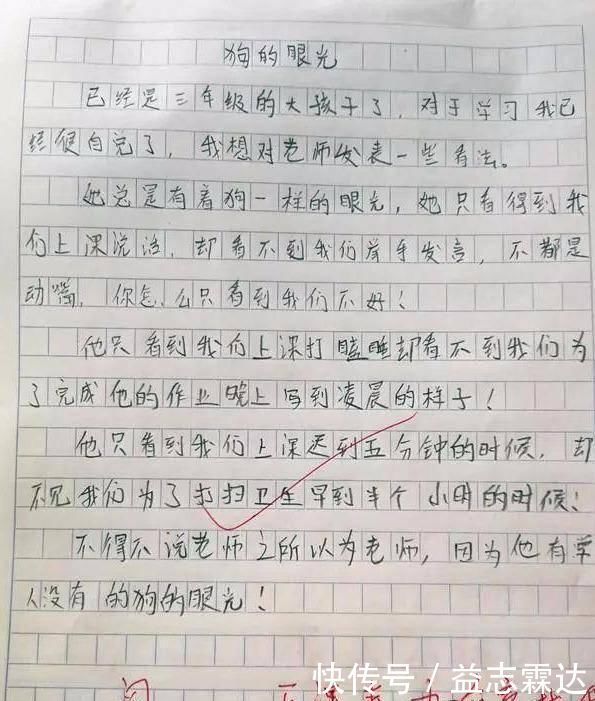 狗的眼光
已经是三年级的大孩子了，对于学习我已
经很自觉了，我想对老师发表一些看法。
她总是有着狗一样的眼光，她只看得到我
们上课说话，却看不到我们举手发言，不都是
动嘴，你怎么只看到我们不好！
他只看到我们上课打瞌睡却看不到我们为
了完成他的作业晚上写到凌晨的样子！
他只看到我们上课迟到五分钟的时候，却
不见我们为了打扫卫生早到半个小时的时候！
不得不说老师之所以为老师，因为他有常
人没有的狗的眼光！
快传号／益志霖达